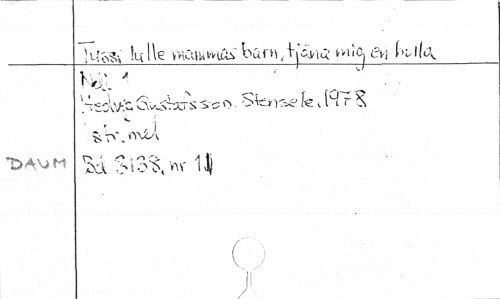 Tussi lulle mammas barn, tjäna mig en hulla
1
Hedvig Gustafsson, Stensele, 1978
str. mel
DAUM Bd 3138, nr 11